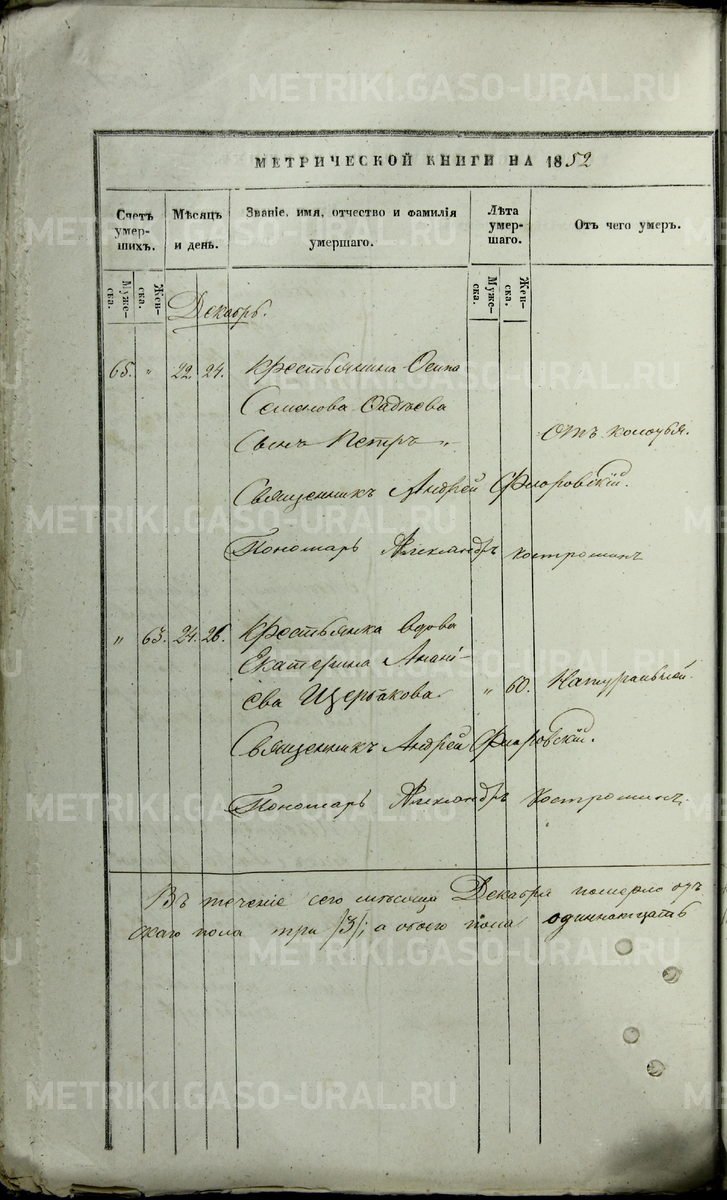 METRIKI.GASO-URAL.RU
МЕТРИЧЕСКОЙ КНИГИ НА 1852
Счетъ умер-шихъ.
Мѣсяцъ и день.
Званіе, имя, отчество и фамилія умершаго.
Лѣта умер-шаго.
Отъ чего умеръ.
Муже-ска.
Жен-ска.
Муже-ска.
Жен-ска.
Декабрь.
65. " 22. 24. Крестьянина Осипа
Семенова
Сынъ Петръ " Отъ колотья.
Священникъ Андрей Флоровскій.
Пономарь Александръ Костроминъ
" 63. 24. 26. Крестьянка вдова
Екатерина Анані-
ева Щербакова " 60. Натуральной.
Священникъ Андрей Флоровскій.
Пономарь Александръ Костроминъ.
Въ теченіе сего мѣсяца Декабря померло
скаго пола три /3/; а обоего пола одиннатцать